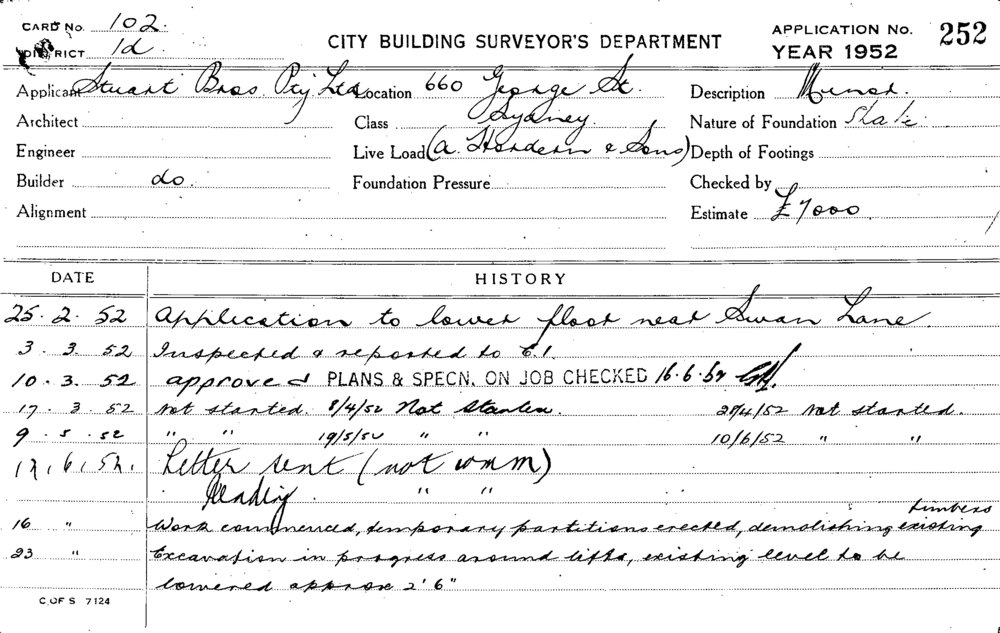 CARD No. 102.
DISTRICT 1d
CITY BUILDING SURVEYOR'S DEPARTMENT
APPLICATION No. 252
YEAR 1952
Applicant Stuart Bros. Pty Ltd Location 660 George St. Description Minor.
Architect Class Sydney. Nature of Foundation Shale.
Engineer Live Load (A. Hordern & Sons) Depth of Footings
Builder do. Foundation Pressure Checked by
Alignment Estimate £7000.
DATE HISTORY
25.2.52 Application to lower floor near Swan Lane.
3.3.52 Inspected & reported to C.I.
10.3.52 approved PLANS & SPECN. ON JOB CHECKED 16.6.52
17.3.52 Not started. 8/4/52 Not Started. 28/4/52 Not started.
9.5.52 " " 19/5/52 " " 10/6/52 " "
12.6.52. Letter sent (not comm)
" "
16 " Work commenced, temporary partitions erected, demolishing existing timbers
23 " Excavation in progress around lifts, existing level to be
lowered approx 2'6"
C OF S 7124